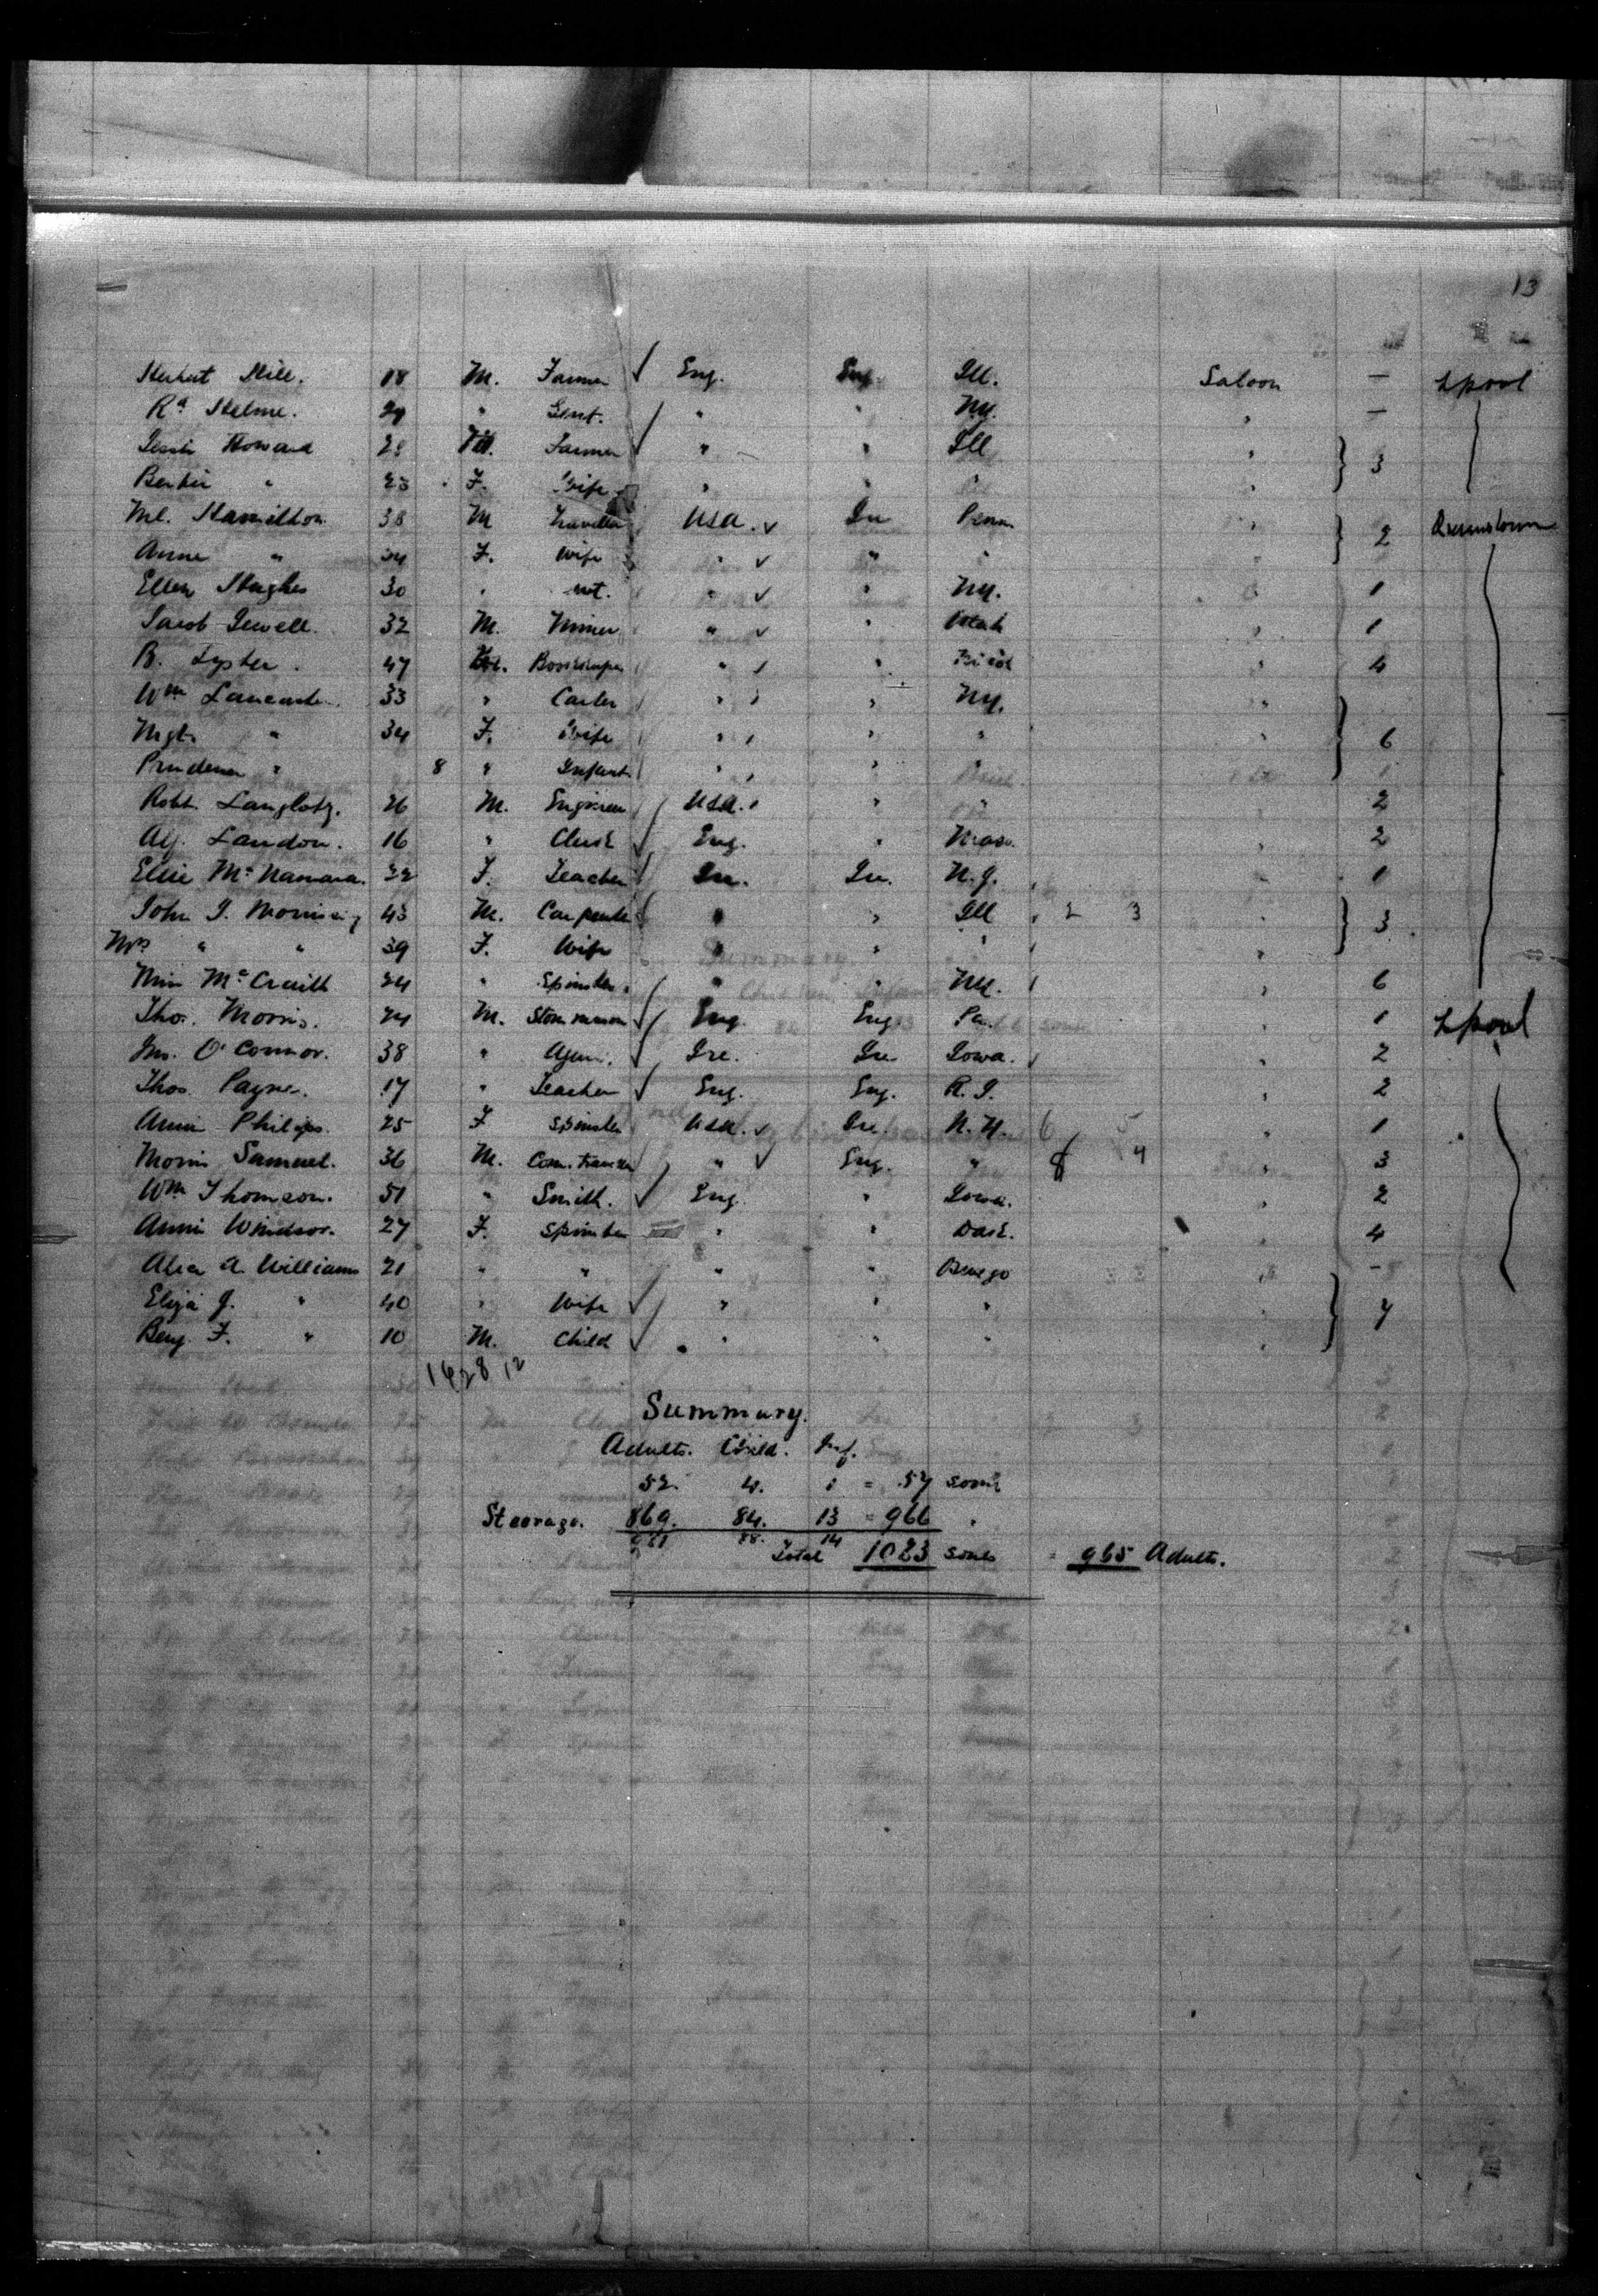 13
Herbert Hill. 18 M. Farmer Eng. Eng. Ill. Saloon — Lpool
Rd Helme. 29 " Gent. " " NY. " —
Howard M. Farmer " " Ill " 3
23 F. Wife " " " "
Ml. Hamilton 38 M Traveller USA. Ire Penn " 2 Queenstown
Anne " 34 F. Wife " " " "
Ellen Hughes 30 " " " NY. 1
Jacob Jewell. 32 M. Miner " " Utah " 1
R. Lyster. 47 " " " 4
Wm Lancaster 33 " Carter " " NY. "
Mgt. " 34 F. Wife " " " " 6
Prudence " 8 " Infant " " "
Robt. Langlotz. 26 M. Engineer USA. " " 2
Alf. Landon. 16 " Clerk Eng. " Mass. " 2
Ellie McNamara. 22 F. Teacher Ire. Ire. N.J. 1
John J. Morrissey 43 M. Carpenter " " Ill 2 3 " 3
Mrs " " 39 F. Wife " " " "
Miss McCraith 24 " Spinster. " " NY. " 6
Tho. Morris. 24 M. Stone mason Eng. Eng Pa. 1 Lpool
Jno. O'Connor. 38 " Agent. Ire. Ire Iowa. " 2
Thos. Payne. 17 " Teacher Eng. Eng. R.I. 2
Annie Philips. 25 F Spinster USA. Ire. N.Y. 6 5 " 1
Morris Samuel. 36 M. Com. Traveller " Eng. " 8 4 " 3
Wm Thomson. 51 " Smith. Eng. " Iowa. " 2
Annie Windsor. 27 F. Spinster " " Dak. " 4
Alice A. Williams 21 " " " " Oswego " —
Eliza J. " 40 " Wife " " " " 7
Benj. F. " 10 M. Child " " " "
16 28 12
Summary.
Adults. Child. Inf.
52. 4. 1 = 57 souls
Steerage. 869. 84. 13 = 966 "
921 88. 14
Total 1023 souls = 965 Adults.